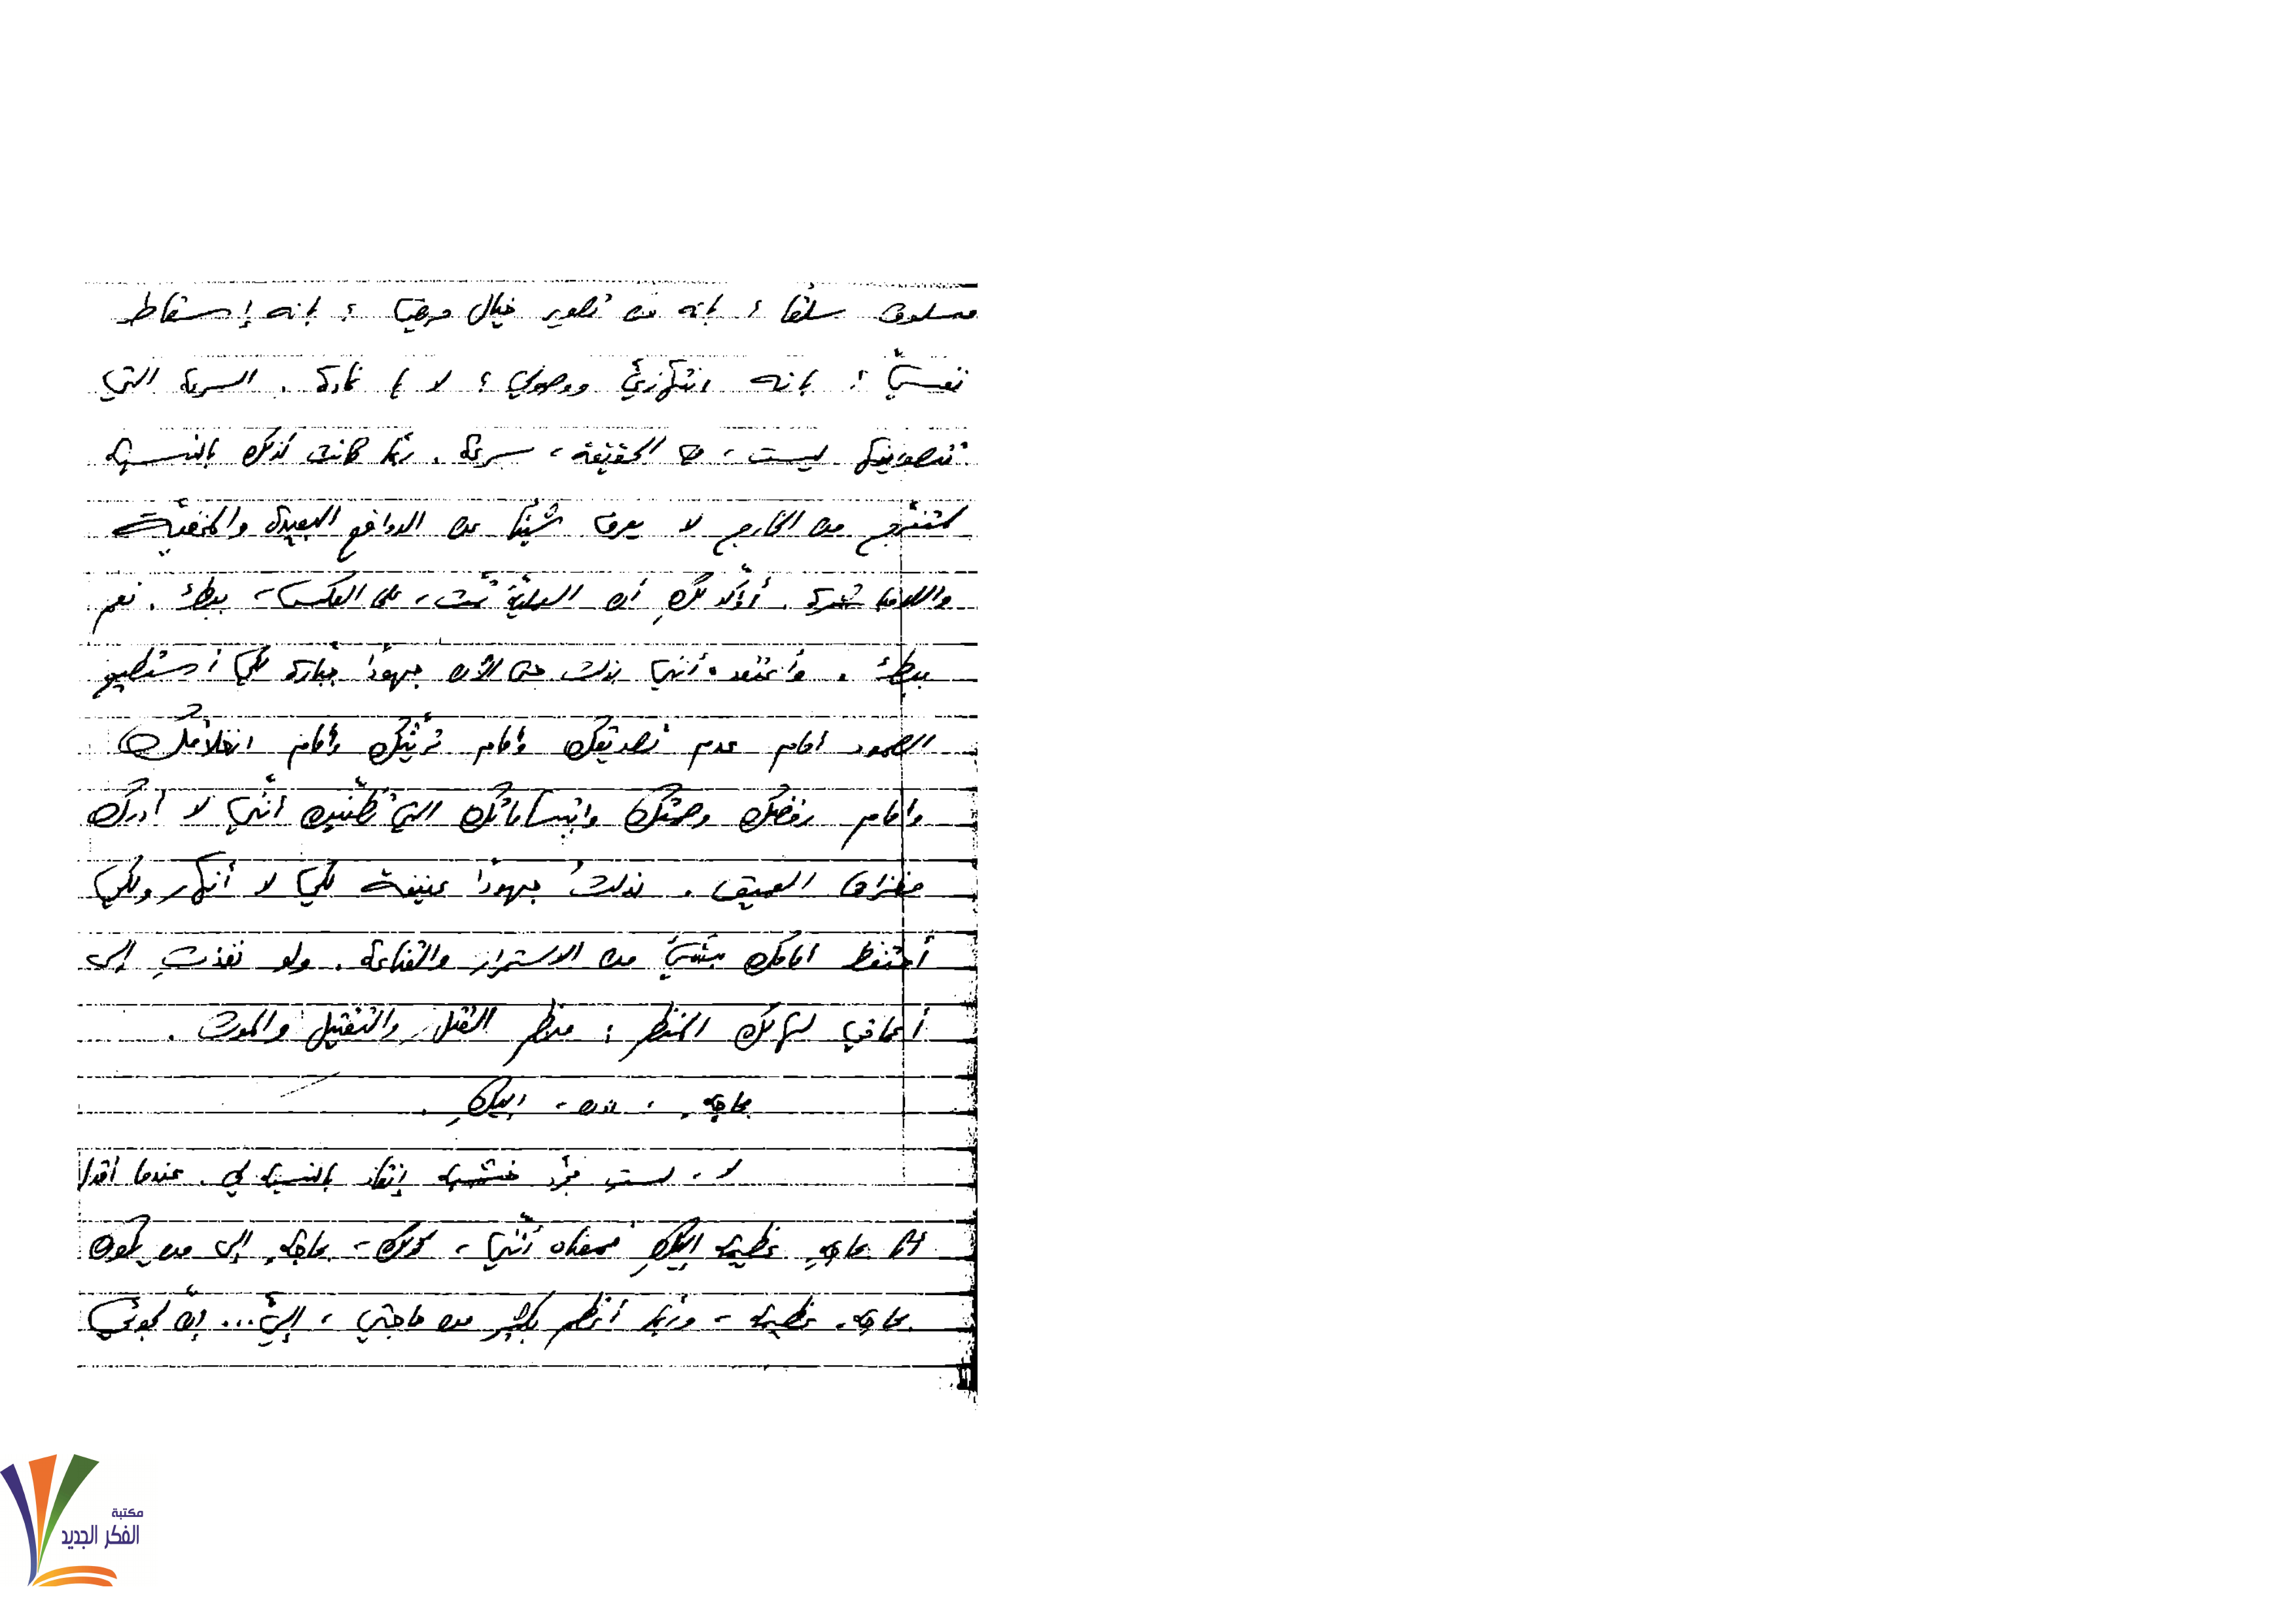 مسلوق سلقا ؛ بأنه من تصوير خيال مريض ؛ بأنه إسقاط
نفسيّ ؛ بأنه انتهازيّ ووصوليّ ؛ لا يا غادة . السرعة التي
تتصورينها ليست ، في الحقيقة ، سرعة . ربّما كانت كذلك بالنسبة
لمتفرّج من الخارج لا يعرف شيئًا عن الدوافع البعيدة والمخفيّة
واللامباشرة . أؤكّد لكِ أن العمليّة تمّت ، على العكس ، ببطء . نعم
ببطء . وأعتقد أنني بذلت حتى الآن جهودًا جبّارة لكي أستطيع
الصمود أمام عدم تصديقك وأمام تريّثك وأمام انغلاقك
وأمام رفضك وصمتك وابتساماتك التي تظنّين أنّني لا أدرك
مغزاها العميق . بذلتُ جهودًا عنيفة لكي لا أنهار ولكي
أحتفظ أمامك بشيء من الاستمرار والقناعة . ولو نفذتِ إلى
أعماقي لهالك المنظر : منظر القتل والتقتيل والموت .
بحاجة ، ، إليكِ .
لا ، لستِ مجرّد خشبة إنقاذ بالنسبة لي . عندما أقول
أنا بحاجةٍ عظيمة إليكِ فمعناه أنّني ، كذلك ، بحاجةٍ إلى من يكون
بحاجة عظيمة ، وربّما أعظم بكثير من حاجتي ، إليّ ... إنّ لجوئي
مكتبة
الفكر الجديد